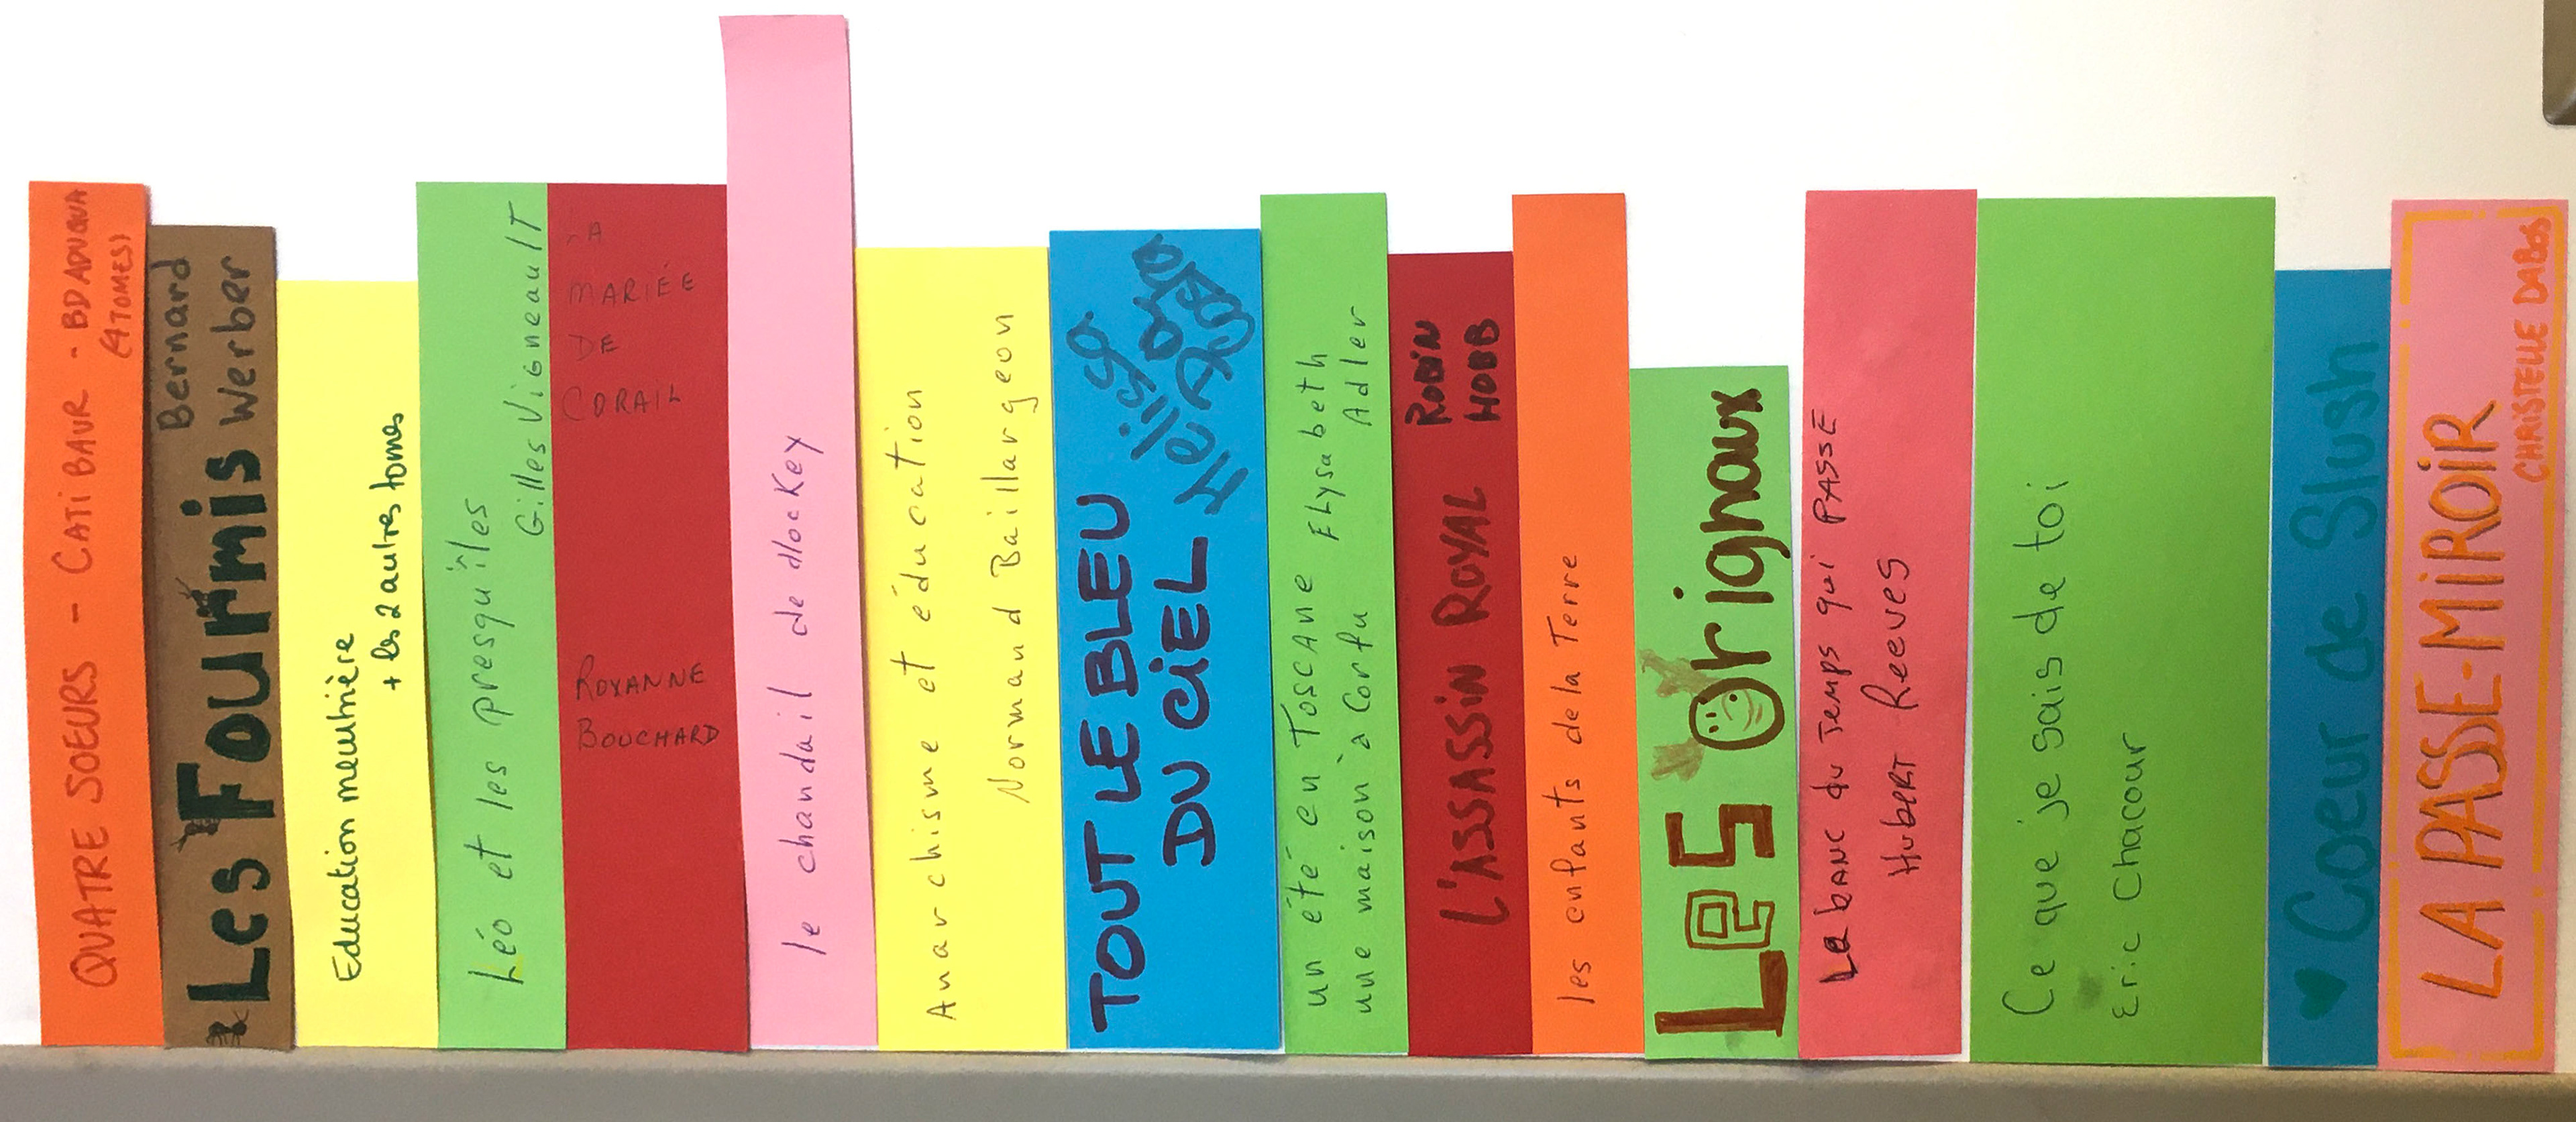 QUATRE SOEURS - CATI BAUR - BDADUQUA
(4 TOMES)
Les Fourmis
Bernard
Werber
Education meurtrière
+ les 2 autres tomes
Léo et les presqu'îles
Gilles Vigneault
LA
MARIÉE
DE
CORAIL
ROXANNE
BOUCHARD
le chandail de hockey
Anarchisme et éducation
Normand Baillargeon
TOUT LE BLEU
DU CIEL
Melissa
Da
Costa
un été en Toscane Elysabeth
une maison à Corfu Adler
L'ASSASSIN ROYAL
ROBIN
HOBB
les enfants de la Terre
Les Orignaux
Le banc du temps qui PASSE
Hubert Reeves
Ce que je sais de toi
Eric Chacour
Coeur de Slush
LA PASSE-MIROIR
CHRISTELLE DABOS